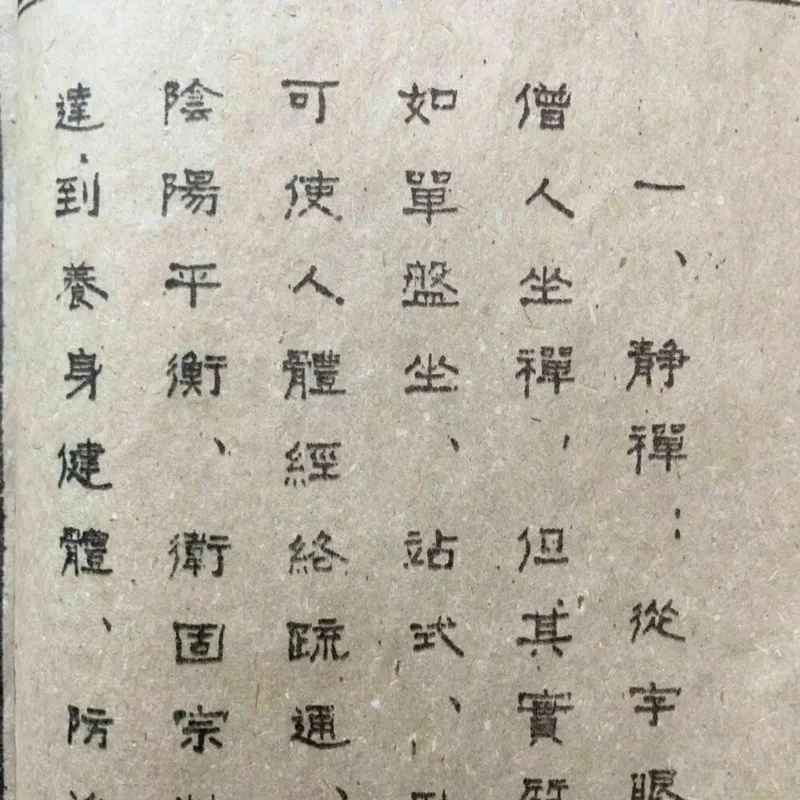 一、静禪:從字眼
僧人坐禪，但其實質
如單盤坐、站式、
可使人體經絡疏通、
陰陽平衡、衛固宗
達到養身健體、防